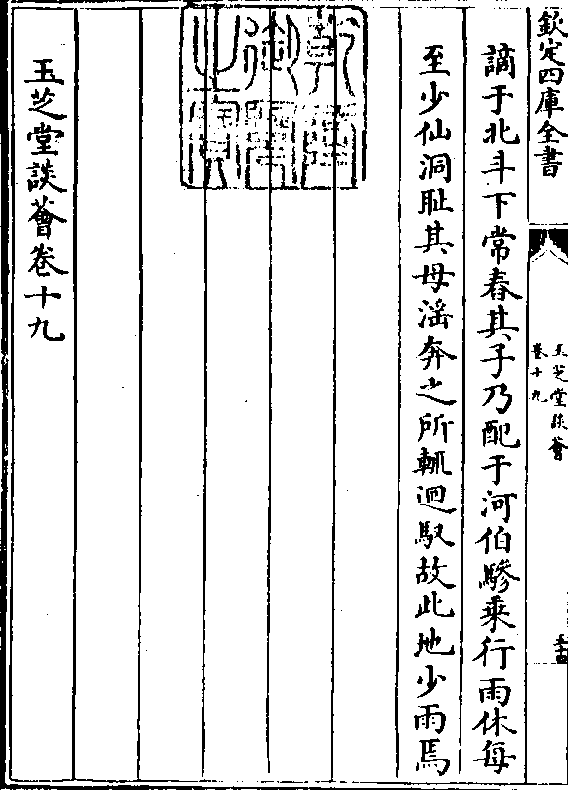 欽定四庫全書
玉芝堂談薈
卷十九
謫于北斗下常舂其子乃配于河伯驂乘行雨休每
至少仙洞恥其母淫奔之所輒迴馭故此地少雨焉
乾隆御覽之寶
玉芝堂談薈卷十九